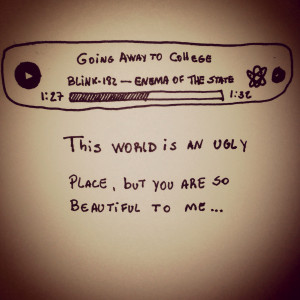 GOING AWAY TO COLLEGE
BLINK-182 — ENEMA OF THE STATE
1:27 1:32
THIS WORLD IS AN UGLY
PLACE, BUT YOU ARE SO
BEAUTIFUL TO ME...